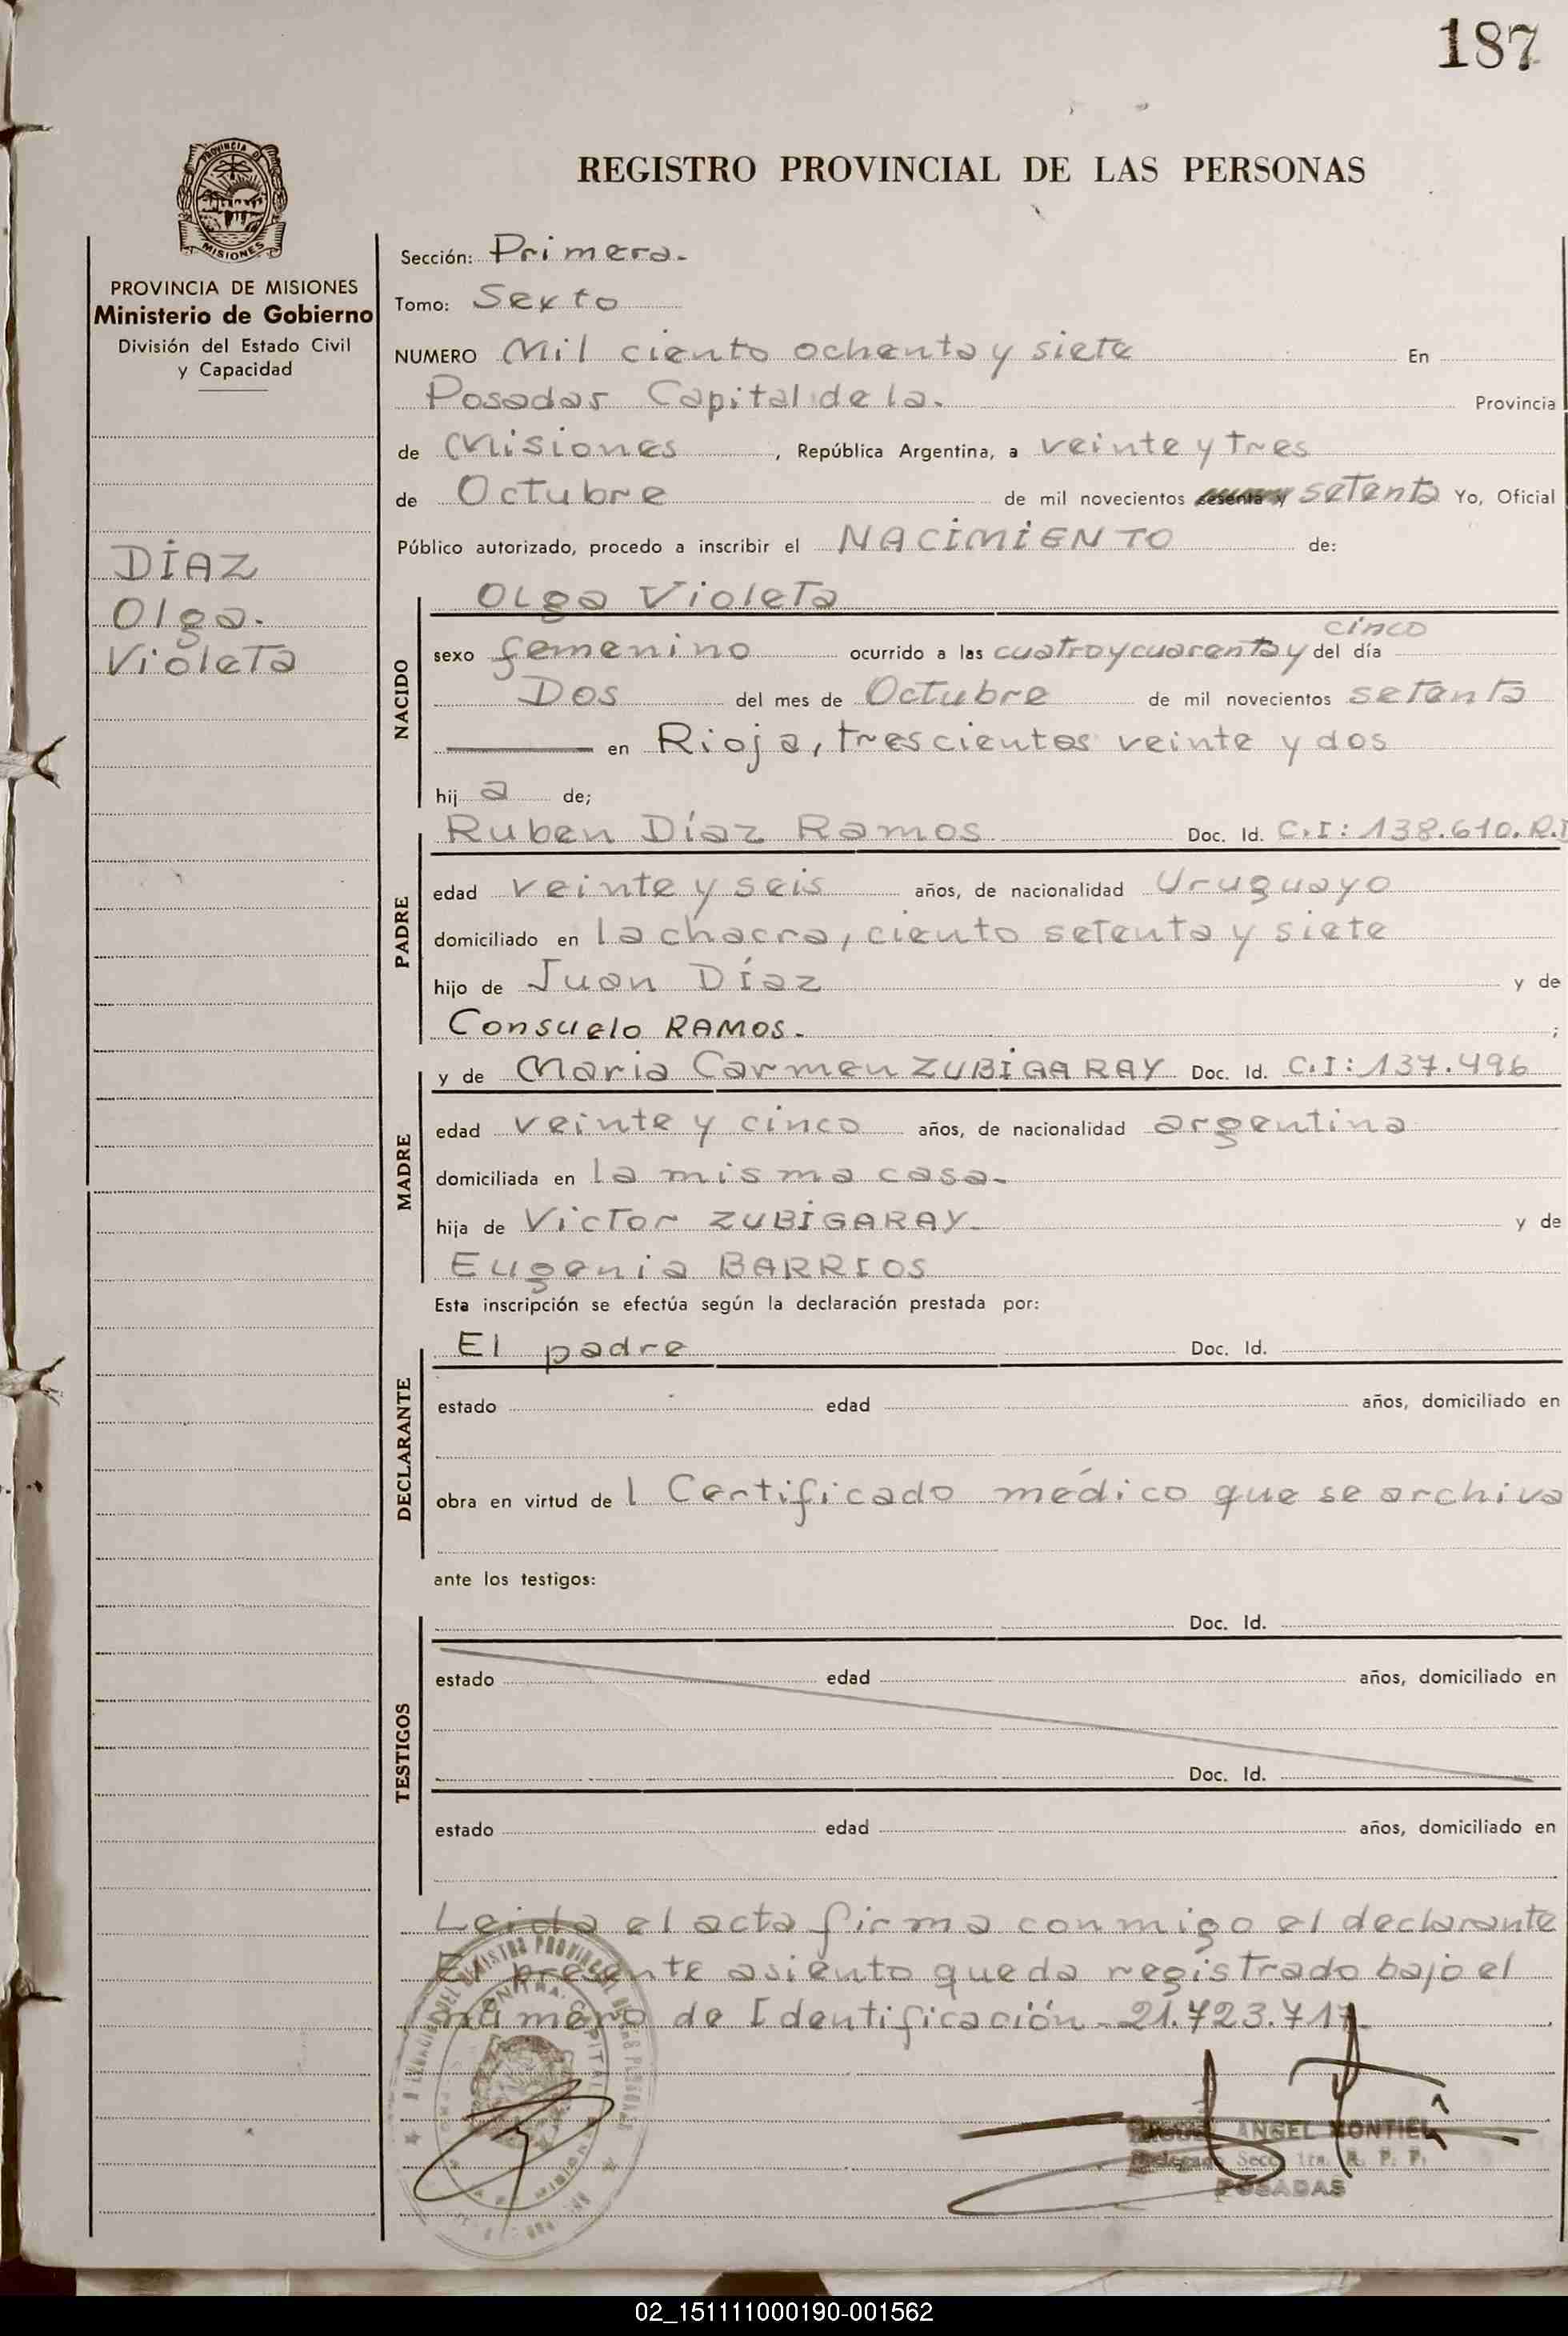 187
REGISTRO PROVINCIAL DE LAS PERSONAS
PROVINCIA DE
MISIONES
PROVINCIA DE MISIONES
Ministerio de Gobierno
División del Estado Civil
y Capacidad
DÍAZ
Olga.
Violeta
Sección: Primera.
Tomo: Sexto
NUMERO Mil ciento ochenta y siete En
Posadas Capital de la. Provincia
de Misiones, República Argentina, a veinte y tres
de Octubre de mil novecientos sesenta y setenta Yo, Oficial
Público autorizado, procedo a inscribir el NACIMIENTO de:
NACIDO
Olga Violeta
cinco
sexo femenino ocurrido a las cuatro y cuarenta y del día
Dos del mes de Octubre de mil novecientos setenta
en Rioja, trescientos veinte y dos
hij a de;
PADRE
Ruben Díaz Ramos Doc. Id. C.I: 138.610. R.I
edad veinte y seis años, de nacionalidad Uruguayo
domiciliado en la chacra, ciento setenta y siete
hijo de Juan Díaz y de
Consuelo RAMOS. ;
MADRE
y de Maria Carmen ZUBIGARAY Doc. Id. C.I: 137.496
edad veinte y cinco años, de nacionalidad argentina
domiciliada en la misma casa.
hija de Victor ZUBIGARAY. y de
Eugenia BARRIOS
Esta inscripción se efectúa según la declaración prestada por:
DECLARANTE
El padre Doc. Id.
estado edad años, domiciliado en
obra en virtud de l Certificado médico que se archiva
ante los testigos:
TESTIGOS
Doc. Id.
estado edad años, domiciliado en
Doc. Id.
estado edad años, domiciliado en
Leida el acta firma conmigo el declarante
El presente asiento queda registrado bajo el
número de Identificación. 21.723.717.
ANGEL MONTIEL
Delegado Secc. 1ra. R. P. P.
POSADAS
02_151111000190-001562